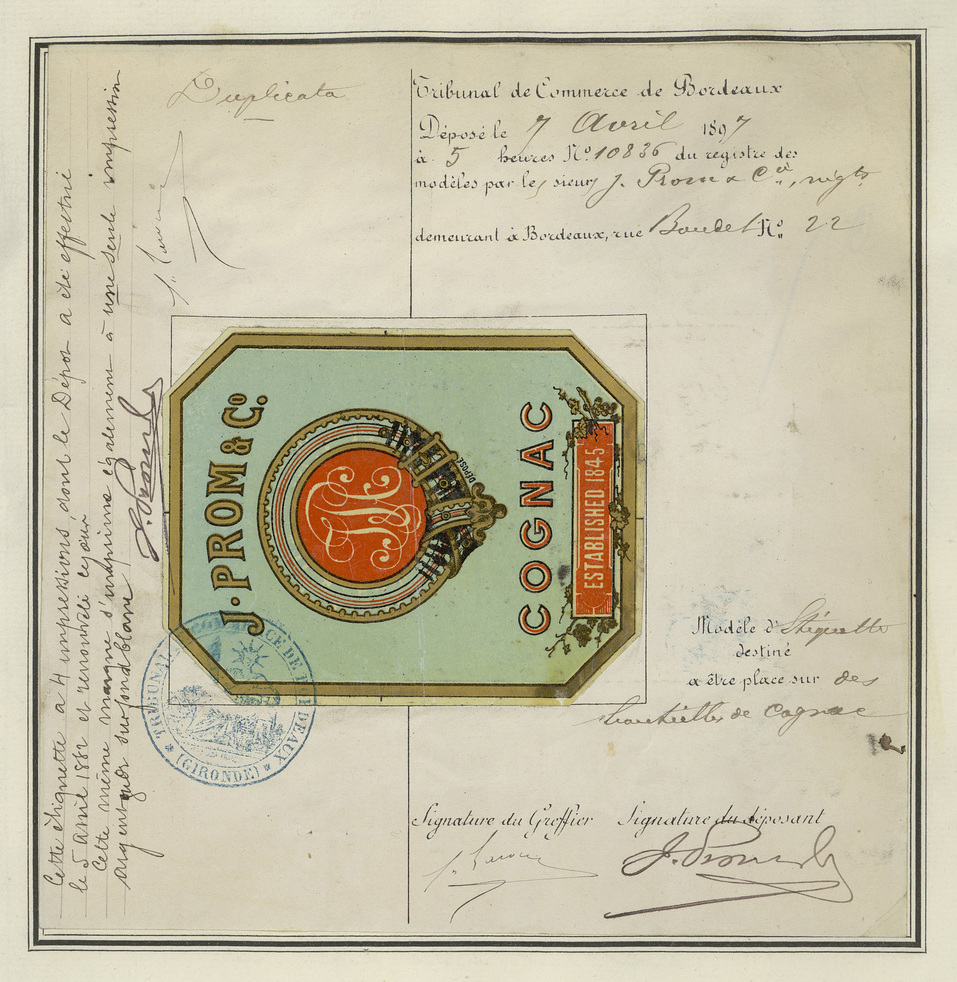 Duplicata
Tribunal de Commerce de Bordeaux
Déposé le 7 Avril 1897
à 5 heures No. 10836 du registre des
modèles par le sieur J. Prom & Cie, négts
demeurant à Bordeaux, rue Boudet No. 22
Cette étiquette a 4 impressions dont le Dépôt a été effectué
le 5 avril 1882 et renouvelé ce jour
Cette même marque s'imprime également à une seule impression
argent sur fond blanc
J. PROM & Co.
DÉPOSÉ
COGNAC
ESTABLISHED 1845
TRIBUNAL DE COMMERCE DE BORDEAUX
(GIRONDE)
Modèle d'Étiquette
destiné
a être place sur des
bouteilles de Cognac
Signature du Greffier Signature du déposant